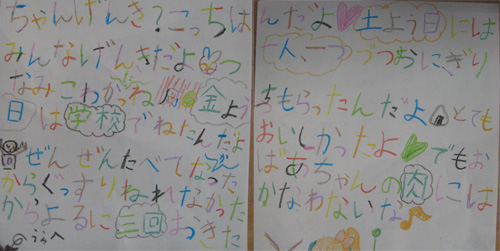 ちゃんげんき?こっちは
みんなげんきだよ つ
なみこわかっね 金よう
日は学校でねたんだよ
ぜんぜんたべてなった
からぐっすりねれなかった
からよるに三回はっきた
うらへ
んだよ 土よう日には
一人、一つづつおにぎり
もらったんだよ とても
おいしかったよ でもお
ばあちゃんの肉には
かなわないな